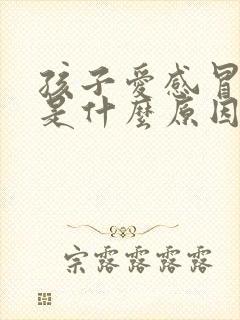 孩子愛感冒
是什麼原因
宗露露露露